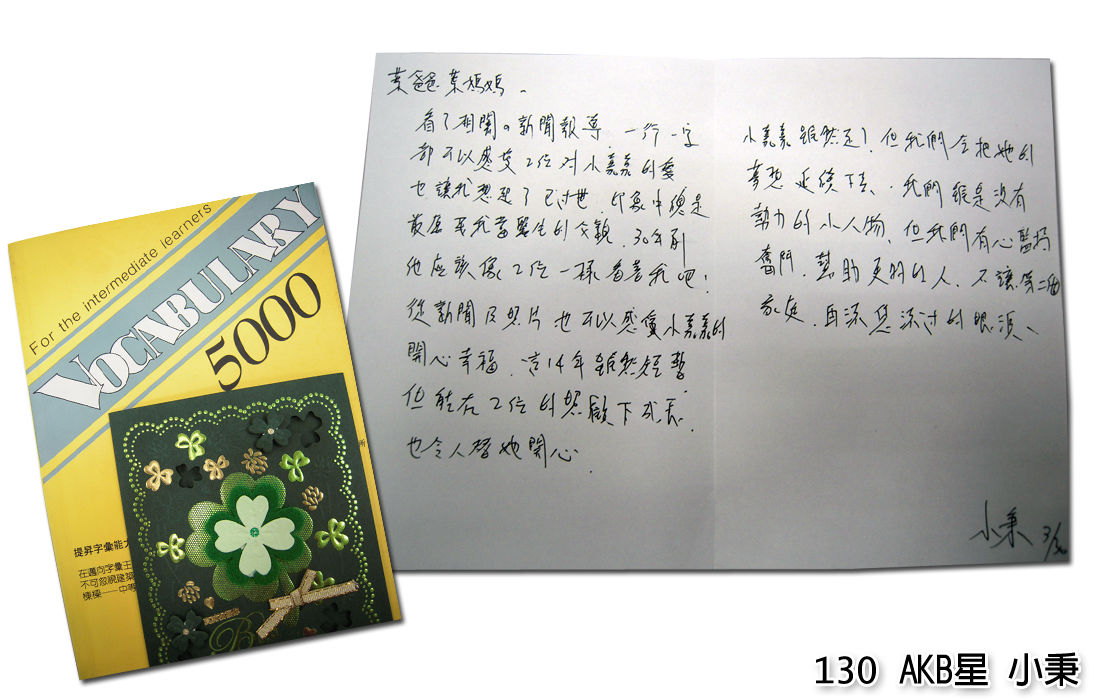 For the intermediate learners
VOCABULARY
5000
提昇字彙能
在邁向字彙王
不可忽視建築
棟樑——中等
葉爸爸葉媽媽、
看了相關的新聞報導,一行一字
都可以感受2位對小嘉嘉的愛
也讓我想起了已過世、印象中總是
最居我當學生的父親,30年前
他應該像2位一樣看著我吧!
從新聞及照片也可以感受小嘉嘉的
開心幸福,這14年雖然短暫
但能在2位的照顧下成長,
也令人替她開心.
小嘉嘉雖然走了,但我們會把她的
夢想延續下去、我們雖是沒有
勢力的小人物,但我們有心堅持
奮鬥,幫助更多的人,不讓第二個
家庭,再流您流過的眼淚、
小秉 3/30
130 AKB星 小秉